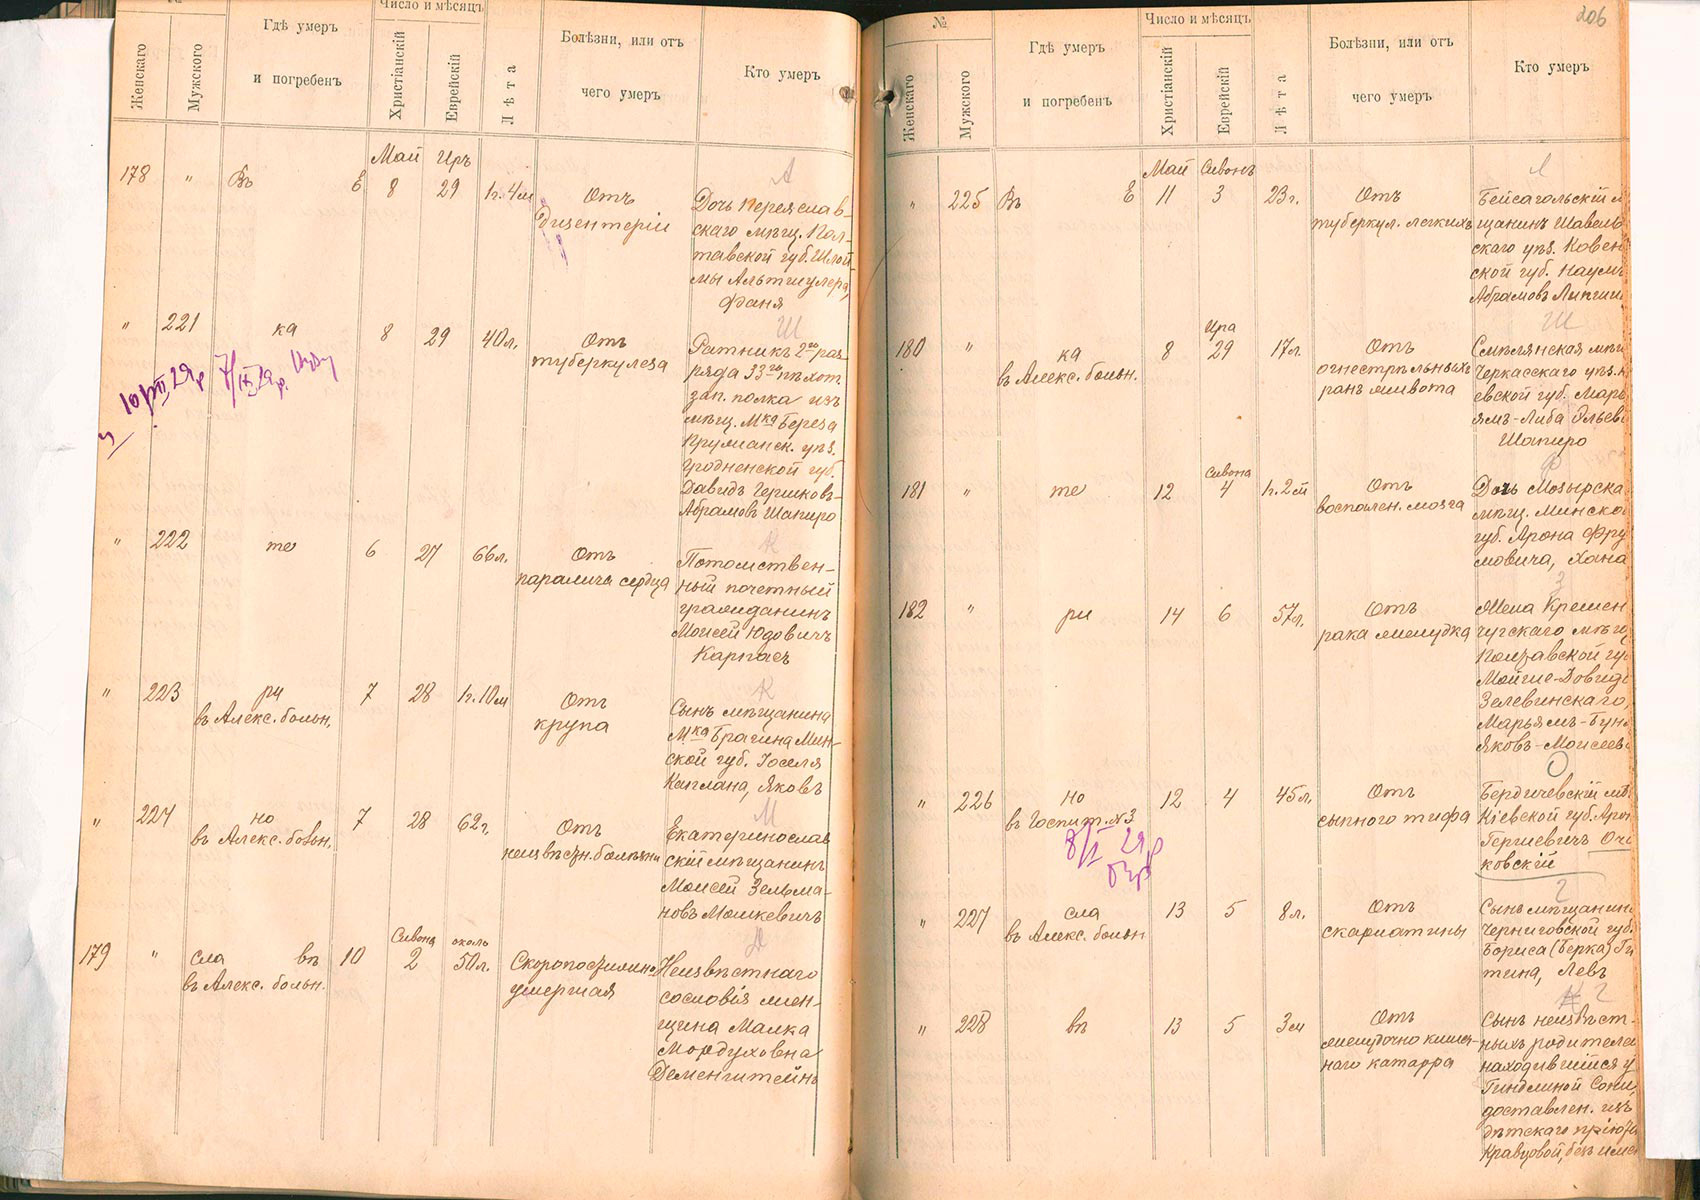 Женскаго
Мужского
Гдѣ умеръ
и погребенъ
Число и мѣсяцъ
Христіанскій
Еврейскій
Лѣта
Болѣзни, или отъ
чего умеръ
Кто умеръ
Май Иръ
178 " Въ Е 8 29 1г.4м
Отъ
дизентеріи
А
Дочь Переяслав-
скаго мѣщ. Пол-
тавской губ. Шлой-
мы Альтшулера,
Фаня
" 221 ка 8 29 40л.
Отъ
туберкулеза
Ш
Ратникъ 2го раз-
ряда 33го пѣхот.
зап. полка изъ
мѣщ. Мка Береза
Пружанск. уѣз.
Гродненской губ.
Давидъ Гершковъ-
Абрамовъ Шапиро
" 222 те 6 27 66л.
Отъ
паралича сердца
К
Потомствен-
ный почетный
гражданинъ
Моисей Юдовичъ
Карпасъ
" 223 ри 7 28 1г.10м
въ Алекс. больн.
Отъ
крупа
К
Сынъ мѣщанина
Мка Брагина Мин-
ской губ. Іоселя
Каплана, Яковъ
" 224 но 7 28 62г.
въ Алекс. больн.
Отъ
неизвѣстн. болѣзни
М
Екатеринослав
скій мѣщанинъ
Моисей Зельма-
новъ Мошкевичъ
Сивона около
179 " сла въ 10 2 50л.
въ Алекс. больн.
Скоропостижно
умершая
Д
Неизвѣстнаго
сословія жен-
щина Малка
Мордуховна
Деменштейнъ
206
№
Женскаго
Мужского
Гдѣ умеръ
и погребенъ
Число и мѣсяцъ
Христіанскій
Еврейскій
Лѣта
Болѣзни, или отъ
чего умеръ
Кто умеръ
Май Сивонъ
" 225 Въ Е 11 3 23г.
Отъ
туберкул. легкихъ
Л
Бейсагольскій м
щанинъ Шавель
скаго уѣз. Ковен
ской губ. Наумъ
Абрамовъ
Ира
180 " ка 8 29 17л.
въ Алекс. больн.
Отъ
огнестрѣльныхъ
ранъ живота
Ш
Смѣлянская мѣщ
Черкасскаго уѣз. К
евской губ. Марь
ямъ-Либа Эльев
Шапиро
Сивона
181 " те 12 4 1г.2м
Отъ
воспален. мозга
Ф
Дочь Мозырска
мѣщ. Минско
губ. Арона Фру
мовича, Хана
182 " ри 14 6 57л.
Отъ
рака желудка
З
Жена Кремен
чугскаго мѣщ
Полтавской гу
Мойше-Довида
Зелевинскаго,
Марьямъ-Бун
Яковъ-Моисеев
" 226 но 12 4 45л.
въ Госпит. №3
Отъ
сыпного тифа
О
Бердичевскій мѣ
Кіевской губ. Арон
Гершевичъ Оча
ковскій
" 227 сла 13 5 8л.
въ Алекс. больн
Отъ
скарлатины
Г
Сынъ мѣщанин
Черниговской губ.
Бориса (Берка) Ги
тина, Левъ
" 228 въ 13 5 3м
Отъ
желудочно кишеч-
наго катарра
Г
Сынъ неизвѣст-
ныхъ родителей
находившійся у
Гиндиной Сони,
доставлен. изъ
дѣтскаго пріюта
Кравцовой, безъ имен